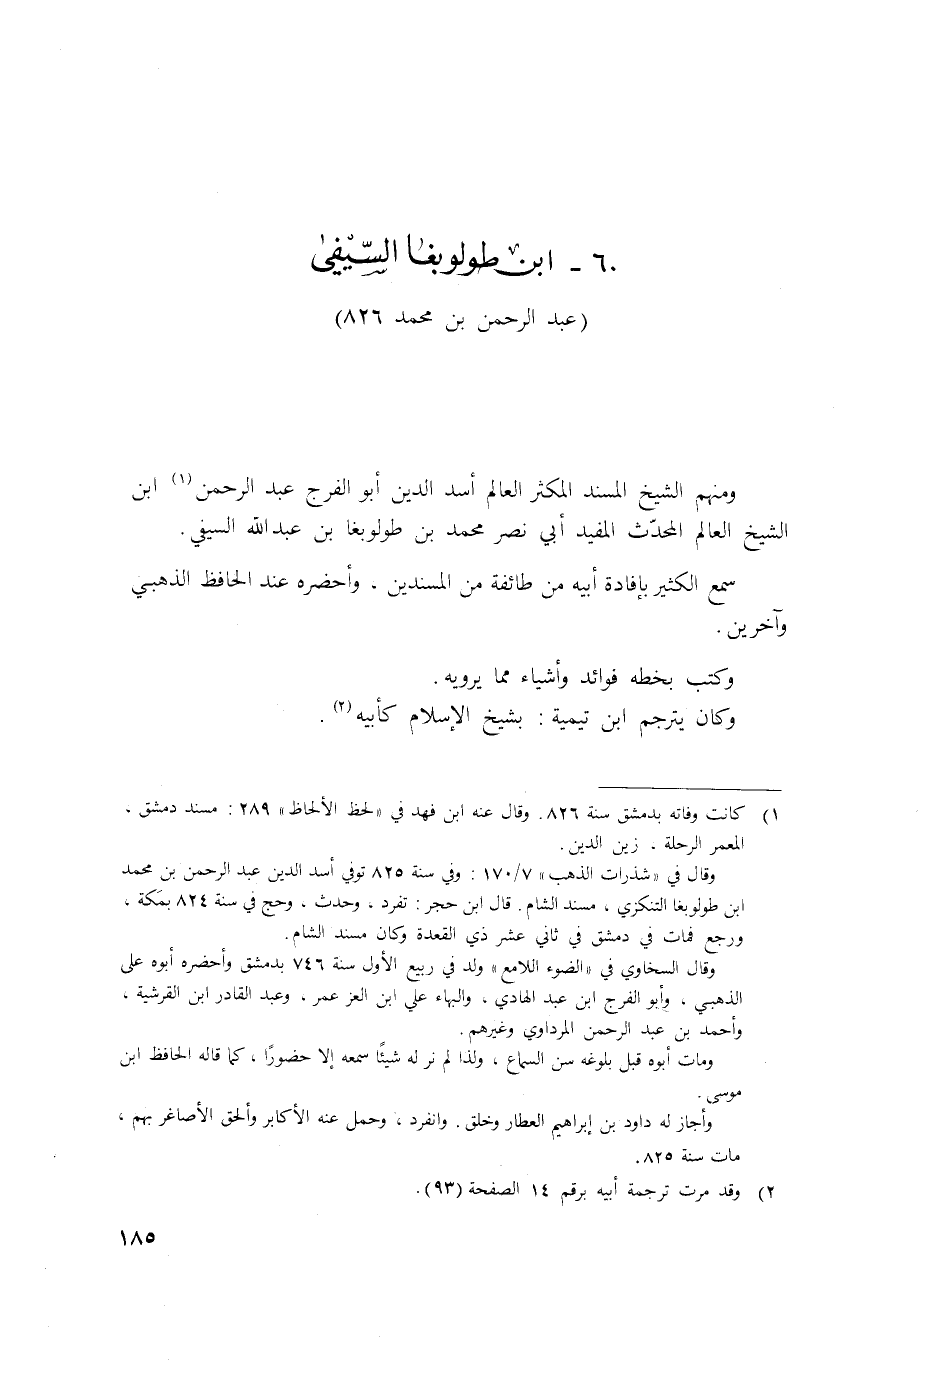 ٦٠ - ابن طولوبغا السّيفي
(عبد الرحمن بن محمد ٨٢٦)
ومنهم الشيخ المسند المكثر العالم أسد الدين أبو الفرج عبد الرحمن(١) ابن
الشيخ العالم المحدّث المفيد أبي نصر محمد بن طولوبغا بن عبدالله السيفي .
سمع الكثير بإفادة أبيه من طائفة من المسندين ، وأحضره عند الحافظ الذهبي
وآخرين .
وكتب بخطه فوائد وأشياء مما يرويه .
وكان يترجم ابن تيمية : بشيخ الإسلام كأبيه(٢) .
١) كانت وفاته بدمشق سنة ٨٢٦. وقال عنه ابن فهد في «لحظ الألحاظ» ٢٨٩ : مسند دمشق ،
المعمر الرحلة ، زين الدين .
وقال في «شذرات الذهب» ١٧٠/٧ : وفي سنة ٨٢٥ توفي أسد الدين عبد الرحمن بن محمد
ابن طولوبغا التنكزي ، مسند الشام . قال ابن حجر : تفرد ، وحدث ، وحج في سنة ٨٢٤ بمكة ،
ورجع فمات في دمشق في ثاني عشر ذي القعدة وكان مسند الشام .
وقال السخاوي في «الضوء اللامع» ولد في ربيع الأول سنة ٧٤٦ بدمشق وأحضره أبوه على
الذهبي ، وأبو الفرج ابن عبد الهادي ، والبهاء علي ابن العز عمر ، وعبد القادر ابن القرشية ،
وأحمد بن عبد الرحمن المرداوي وغيرهم .
ومات أبوه قبل بلوغه سن السماع ، ولذا لم نر له شيئًا سمعه إلا حضورًا ، كما قاله الحافظ ابن
موسى .
وأجاز له داود بن إبراهيم العطار وخلق . وانفرد ، وحمل عنه الأكابر وألحق الأصاغر بهم ،
مات سنة ٨٢٥ .
٢) وقد مرت ترجمة أبيه برقم ١٤ الصفحة (٩٣) .
١٨٥